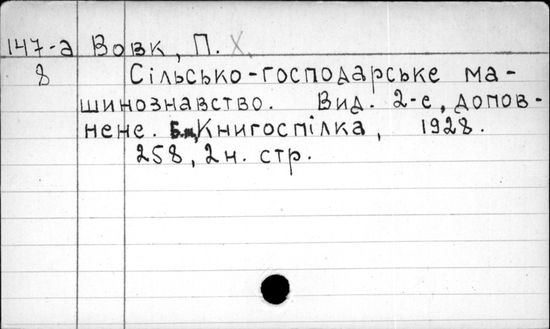 147-а Вовк, П. Х.
8 Сільсько-господарське ма-
шинознавство. Вид. 2-е, допов-
нене. Б.м, Книгоспілка, 1928.
258, 2 н. стр.